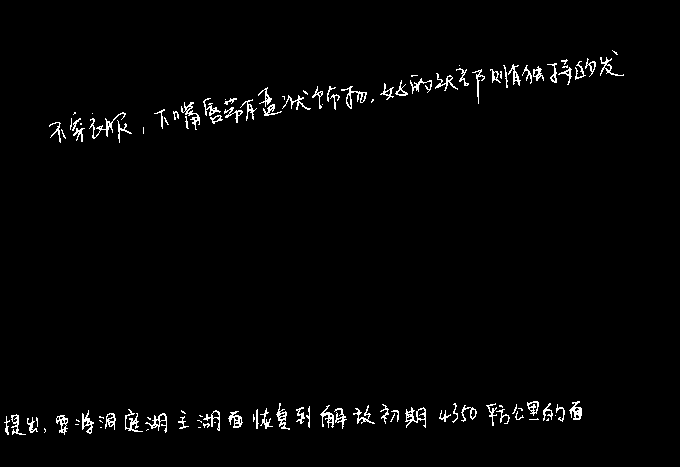 不穿衣服，下嘴唇带有盖状饰物，她的头部则有独特的发
提出，要将洞庭湖主湖面恢复到解放初期4350平方公里的面